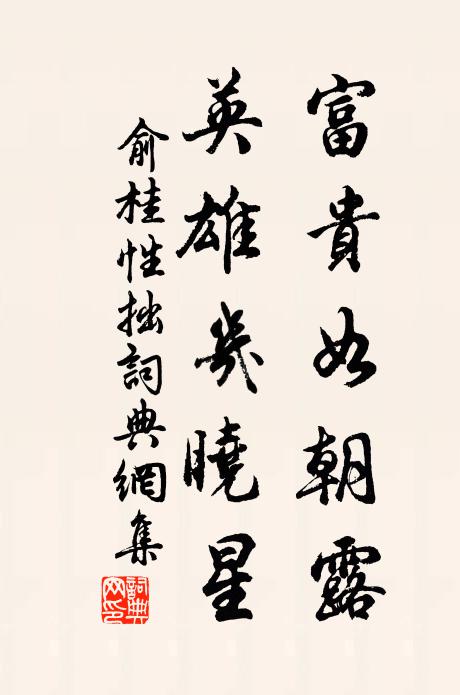 富貴如朝露
英雄幾曉星
俞桂性拙詞典網集
詞典网印